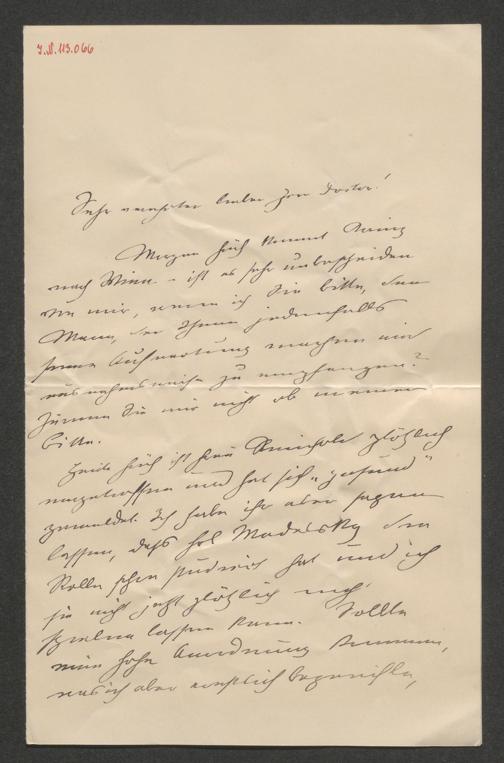 I.N. 113.066
Sehr verehrter lieber Herr Doctor!
Morgen früh kommt Kainz
nach Wien – ist es sehr unbescheiden
von mir, wenn ich Sie bitte, den
Mann, der Ihnen jedenfalls
seine Aufwartung machen wird
ausnahmsweise zu empfangen?
Zürnen Sie mir nicht ob meiner
Bitte.
Heute früh ist Frau plötzlich
eingetroffen und hat sich „gesund"
gemeldet. Ich habe ihr aber sagen
lassen, daß Frl. Madelsky den
Rolle schon studiert hat und ich
sie nicht jetzt plötzlich nicht
spielen lassen kann. Sollte
eine hohe Anordnung kommen,
was ich aber ernstlich bezweifle,